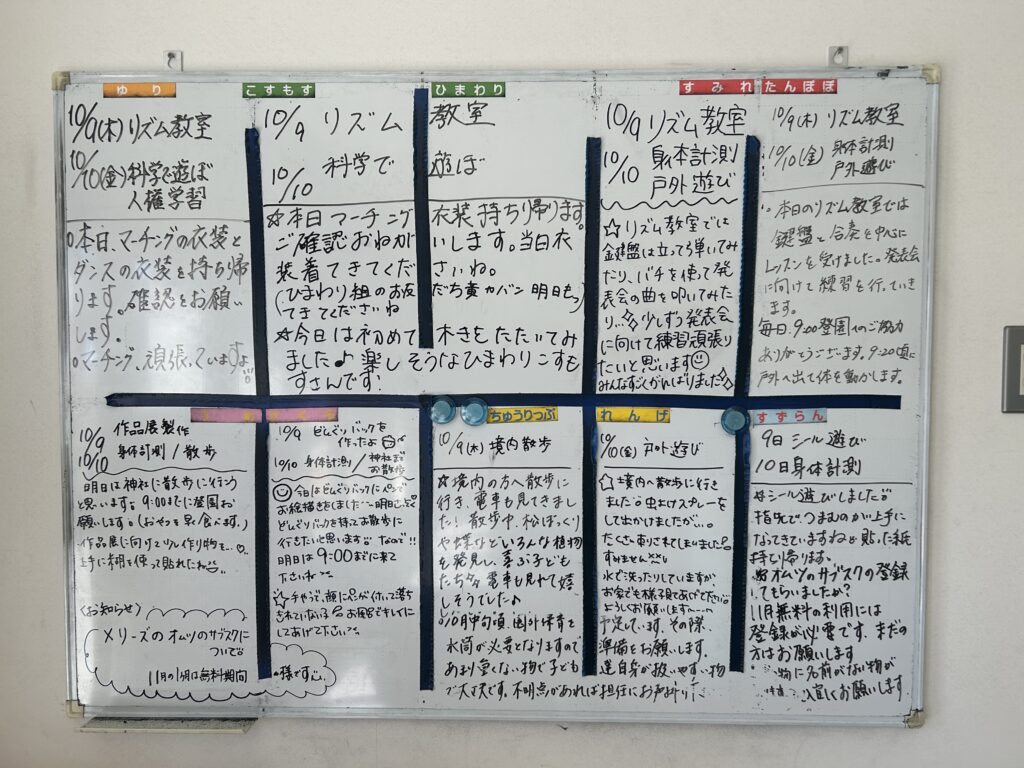 ゆり
10/9(木) リズム教室
10/10(金) 科学で遊ぼ
人権学習
○本日、マーチングの衣装と
ダンスの衣装を持ち帰
ります。確認をお願い
します。
○マーチング、頑張っていますよ
こすもす ひまわり
10/9 リズム 教室
10/10 科学で 遊ぼ
☆本日マーチング 衣装持ち帰ります。
ご確認おねが いします。当日衣
装着てきてくだ さいね。
(ひまわり組のお友 だち黄カバン 明日もっ
てきてくださいね
☆今日は初めて 木きをたたいてみ
ました♪楽し そうなひまわりこすも
すさんです!
すみれ
10/9 リズム教室
10/10 身体計測
戸外遊び
☆リズム教室では
鍵盤は立っても弾いてみ
たり、バチを使って発
表会の曲を叩いてみた
り…☆少しずつ発表会
に向けて練習頑張り
たいと思います
みんなすごくがんばりました☆
たんぽぽ
10/9(木) リズム教室
10/10(金) 身体計測
戸外遊び
本日のリズム教室では
鍵盤と合奏を中心に
レッスンを受けました。発表会
に向けて練習を行っていき
ます。
毎日9:00登園へのご協力
ありがとうございます。9:20頃に
戸外へ出て体を動かします。
10/9 作品展製作
10/10 身体計測/散歩
明日は神社に散歩に行こう
と思います。9:00までに登園お
願いします。(おやつを早く食べます。)
作品展に向けて
上手に
〈お知らせ〉
メリーズのオムツのサブスクに
ついて
11月の1ヶ月は無料期間
10/9 どんぐりバックを
作ったよ
10/10 身体計測/神社まで
お散歩
今日はどんぐりバックにペンで
お絵描きをしました 明日
どんぐりバックを持ってお散歩に
行きたいと思います なので!!
明日は9:00までに来て
下さいね
☆手やうで、顔に
お風呂できれいに
してあげて下さい
ちゅうりっぷ
10/9(木) 境内散歩
☆境内の方へ散歩に
行き、電車も見てきまし
た! 散歩中、松ぼっくり
や蝶などいろんな植物
を発見し、喜ぶ子ども
たち 電車も見れて嬉
しそうでした♪
10月中旬頃、園外保育で
水筒が必要となりますので
あまり重くない物で子ども
で大丈夫です。不明点があれば担任にお声掛け
れんげ
10/10(金) 戸外遊び
☆境内へ散歩に行き
ました。虫よけスプレーを
して出かけましたが…
たくさん刺されてしまいました
すみません
水で洗ったりしていますが、
お家でも様子見てあげて下さい。
よろしくお願いします
予定しています。その際、
準備をお願いします。
達自身が扱いやすい物
すずらん
9日 シール遊び
10日 身体計測
シール遊びしました
指先でつまむのが上手に
なってきていますね 貼った紙
持ち帰ります。
オムツのサブスクの登録
してもらいましたか?
11月無料の利用には
登録が必要です。まだの
方はお願いします
物に名前がない物が
宜しくお願いします